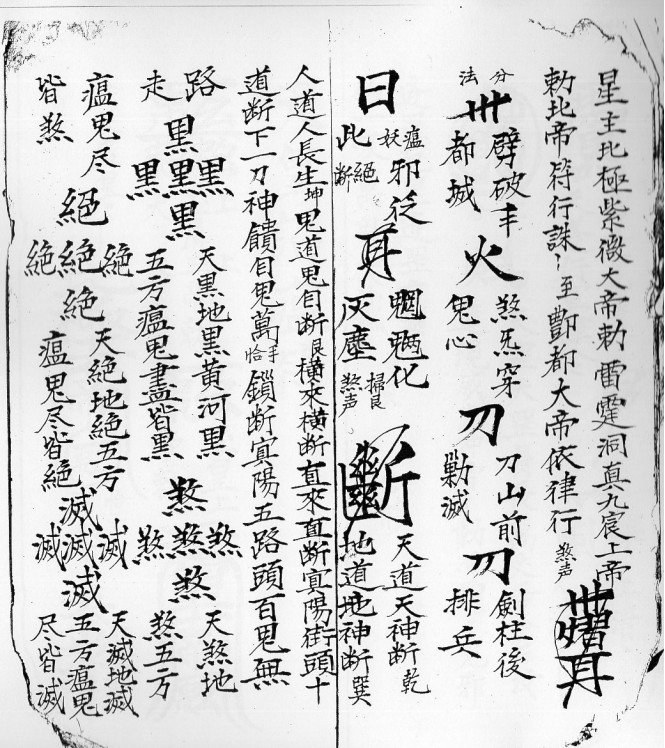 星主北極紫微大帝勅雷霆洞真九宸上帝
勅北帝符行誅〻至酆都大帝依律行煞声
分法卅劈破丰都城火煞炁穿鬼心刀刀山前勦滅刀劍柱後排兵
日瘟妖邪從此絕断耳魍魎化灰塵掃艮煞声斷天道天神断乾地道地神断巽
人道人長生坤鬼道鬼自断艮横來横断直來直断冥陽街頭十
道断下一刀神饋自鬼萬手恰鎖断冥陽五路頭百鬼無
路走黑黑黑黑黑天黑地黑黄河黑五方瘟鬼盡皆黑煞煞煞煞煞天煞地煞五方
瘟鬼尽皆煞絕絕絕絕絕天絕地絕五方瘟鬼尽皆絕滅滅滅滅滅天滅地滅五方瘟鬼尽皆滅